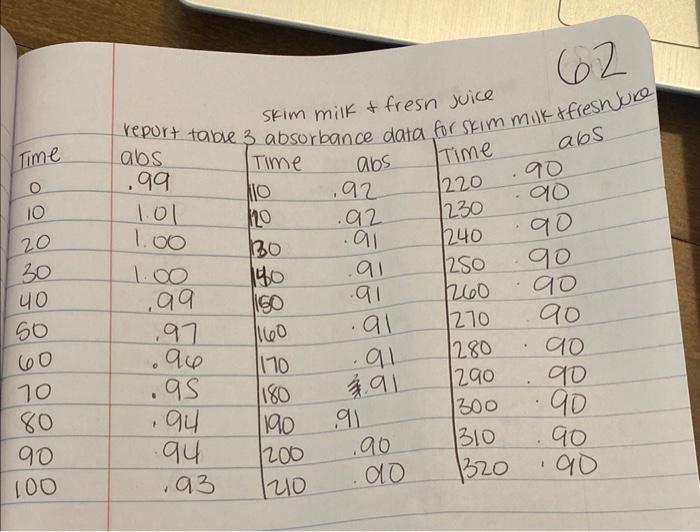 62
skim milk + fresh juice
report table 3 absorbance data for skim milk + fresh juice
Time abs Time abs Time abs
0 .99 110 .92 220 .90
10 1.01 120 .92 230 .90
20 1.00 130 .91 240 .90
30 1.00 140 .91 250 .90
40 .99 150 .91 260 .90
50 .97 160 .91 270 .90
60 .96 170 .91 280 .90
70 .95 180 .91 290 .90
80 .94 190 .91 300 .90
90 .94 200 .90 310 .90
100 .93 210 .90 320 .90